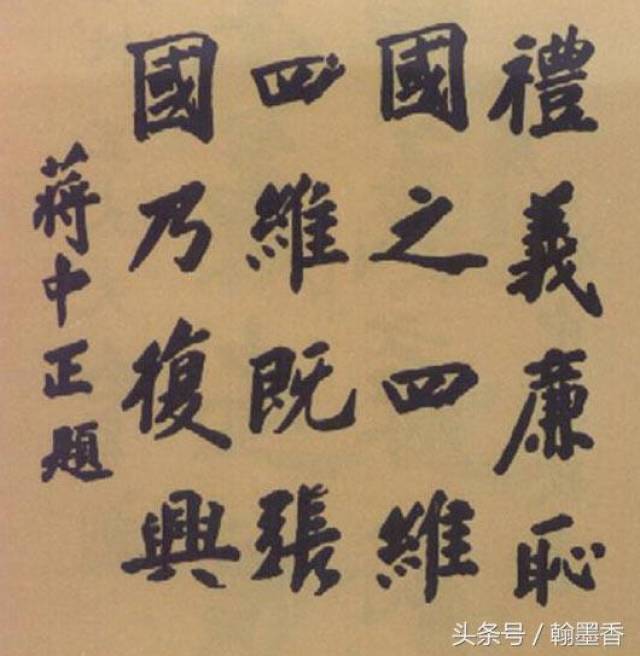 禮義廉恥
國之四維
四維既張
國乃復興
蔣中正題
头条号 / 翰墨香